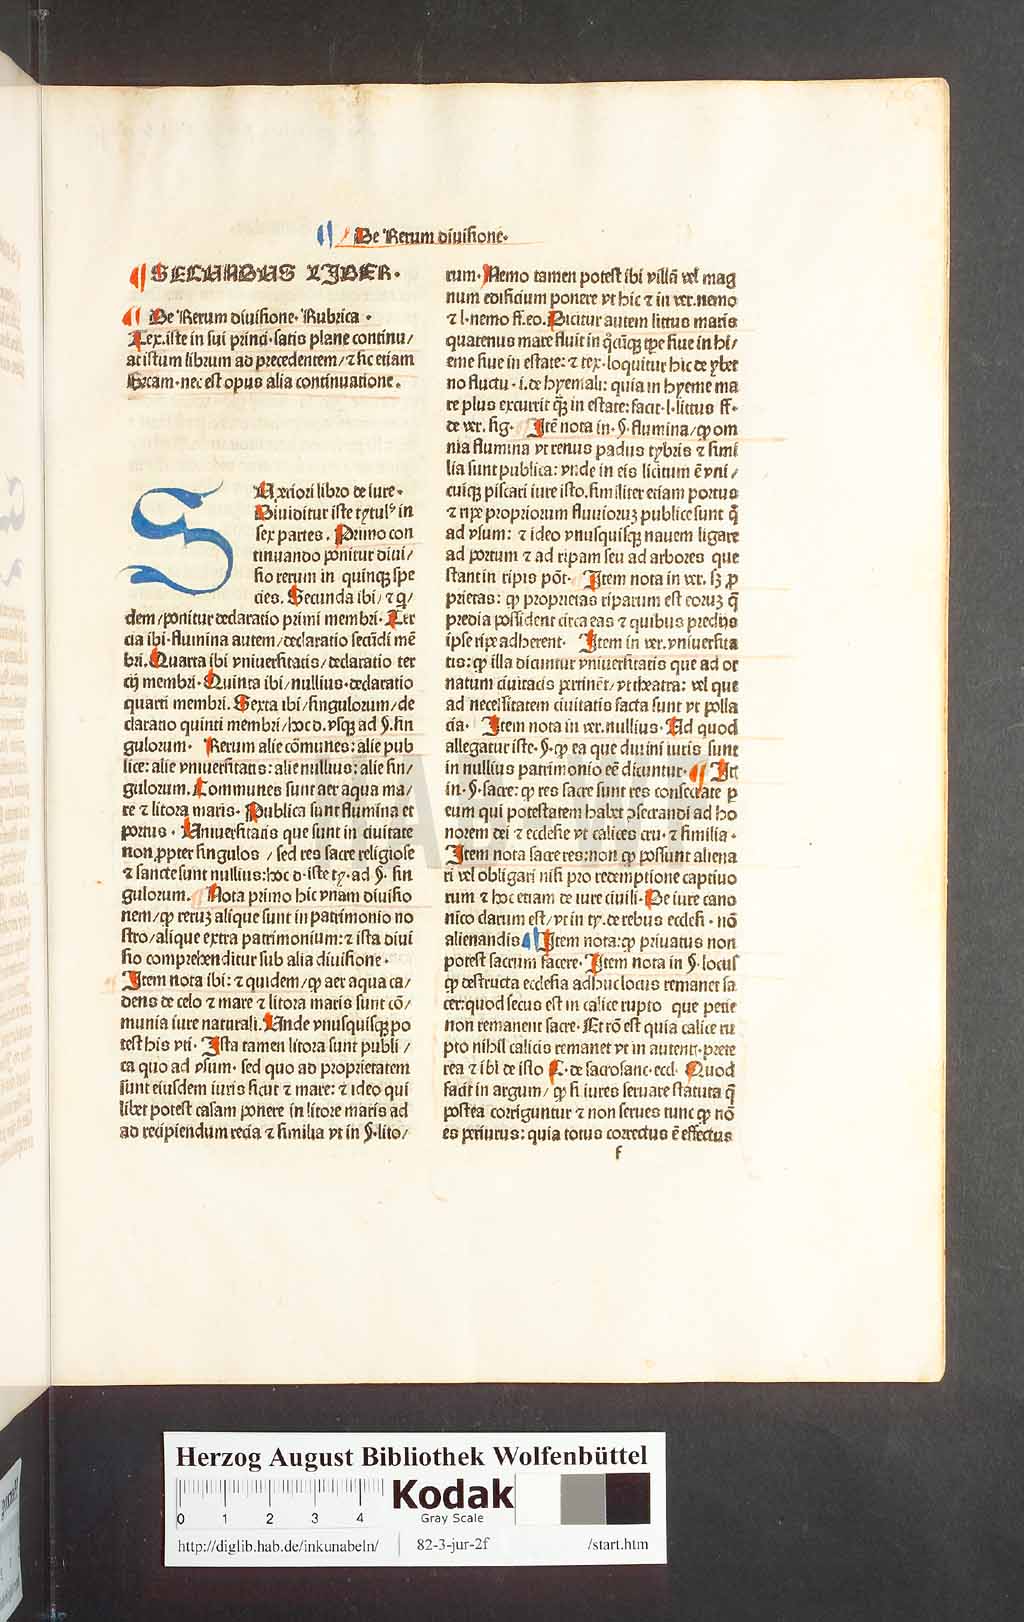 De Rerum diuisione.
SECUNDUS LIBER.
De Rerum diuisione. Rubrica.
Tex. iste in sui princi. satis plane continu/
at istum librum ad precedentem/ ⁊ sic etiam
nec est opus alia continuatione.
S
Uperiori libro de iure.
Diuiditur iste tytulꝰ in
sex partes. Primo con
tinuando ponitur diui/
sio rerum in quinqꝫ spe
cies. Secunda ibi/ ⁊ q̄/
dem/ponitur declaratio primi membri. Ter
cia ibi. flumina autem/declaratio secūdi mē
bri. Quarta ibi vniuersitatis/declaratio ter
cij membri. Quinta ibi/nullius. declaratio
quarti membri. Sexta ibi/singulorum/de
claratio quinti membri/hoc d. vsqꝫ ad §. sin
gulorum. Rerum alie cōmunes: alie pub
lice: alie vniuersitatis: alie nullius: alie sin/
gulorum. Communes sunt aer aqua ma/
re ⁊ litora maris. Publica sunt flumina et
portus. Uniuersitatis que sunt in ciuitate
non ꝓpter singulos / sed res sacre religiose
⁊ sancte sunt nullius: hoc d. iste ty. ad §. sin
gulorum. Nota primo hic vnam diuisio
nem/ꝙ reruꝫ alique sunt in patrimonio no
stro/alique extra patrimonium: ⁊ ista diui
sio comprehenditur sub alia diuisione.
Item nota ibi: ⁊ quidem/ꝙ aer aqua ca/
dens de celo ⁊ mare ⁊ litora maris sunt cō/
munia iure naturali. Unde vnusquisqꝫ po
test his vti. Ista tamen litora sunt publi /
ca quo ad vsum. sed quo ad proprietatem
sunt eiusdem iuris sicut ⁊ mare: ⁊ ideo qui
libet potest casam ponere in litore maris ad
ad recipiendum recia ⁊ similia vt in §. lito/
rum. Nemo tamen potest ibi villā vel mag
num edificium ponere vt hic ⁊ in ver. nemo
⁊ l. nemo ff. eo. Dicitur autem littus maris
quatenus mare fluit in q̄cūqꝫ tpe siue in hi/
eme siue in estate: ⁊ tex. loquitur hic de yber
no fluctu. i. de hyemali: quia in hyeme ma
re plus excurrit q̄ꝫ in estate: facit. l. littus ff.
de ver. sig. Itē nota in. §. flumina/ꝙ om
nia flumina vt renus padus tybris ⁊ simi
lia sunt publica: vnde in eis licitum ē vni /
cuiqꝫ piscari iure isto. similiter etiam portus
⁊ ripe propriorum fluuioruꝫ publice sunt q̄
ad vsum: ⁊ ideo vnusquisqꝫ nauem ligare
ad portum ⁊ ad ripam seu ad arbores que
stant in ripis pōt. Item nota in ver. sꝫ ꝓ
prietas: ꝙ proprietas riparum est eoruꝫ q̄
predia possident circa eas ⁊ quibus predijs
ipse ripe adherent. Item in ver. vniuersita
tis: ꝙ illa dicuntur vniuersitatis que ad or
natum ciuitatis pertinēt/ vt theatra: vel que
ad necessitatem ciuitatis facta sunt vt polla
cia. Item nota in ver. nullius. Ad quod
allegatur iste. §. ꝙ ea que diuini iuris sunt
in nullius patrimonio eē dicuntur. Itē
in. §. sacre: ꝙ res sacre sunt res consecrate ꝑ
eum qui potestatem habet ꝯsecrandi ad ho
norem dei ⁊ ecclesie vt calices ceu. ⁊ similia.
Item nota sacre res: non ꝙ possunt aliena
ri vel obligari nisi pro redemptione captiuo
rum ⁊ hoc etiam de iure ciuili. De iure cano
nico datum est/ vt in ty. de rebus ecclesi. nō
alienandis Item nota: ꝙ priuatus non
potest sacrum facere. Item nota in §. locus
ꝙ destructa ecclesia adhuc locus remanet sa
cer: quod secus est in calice rupto que petie
non remanent sacre. Et rō est quia calice ru
pto nihil calicis remanet vt in autent. prete
rea ⁊ ibi de isto C. de sacrosanc. eccl. Quod
facit in argum/ ꝙ si iures seruare statuta q̄
postea corriguntur ⁊ non serues tunc ꝙ nō
es periurus: quia totus correctus ē effectus
f
Herzog August Bibliothek Wolfenbüttel
0 1 2 3 4
Kodak
Gray Scale
http://diglib.hab.de/inkunabeln/ 82-3-jur-2f /start.htm